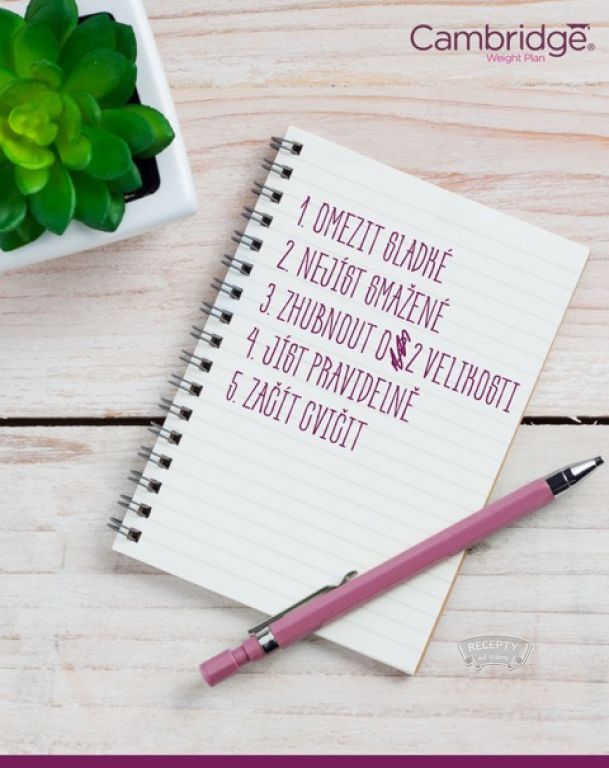 Cambridge®
Weight Plan
1. OMEZIT SLADKÉ
2. NEJÍST SMAŽENÉ
3. ZHUBNOUT O 2 VELIKOSTI
4. JÍST PRAVIDELNĚ
5. ZAČÍT CVIČIT
RECEPTY
od mámy